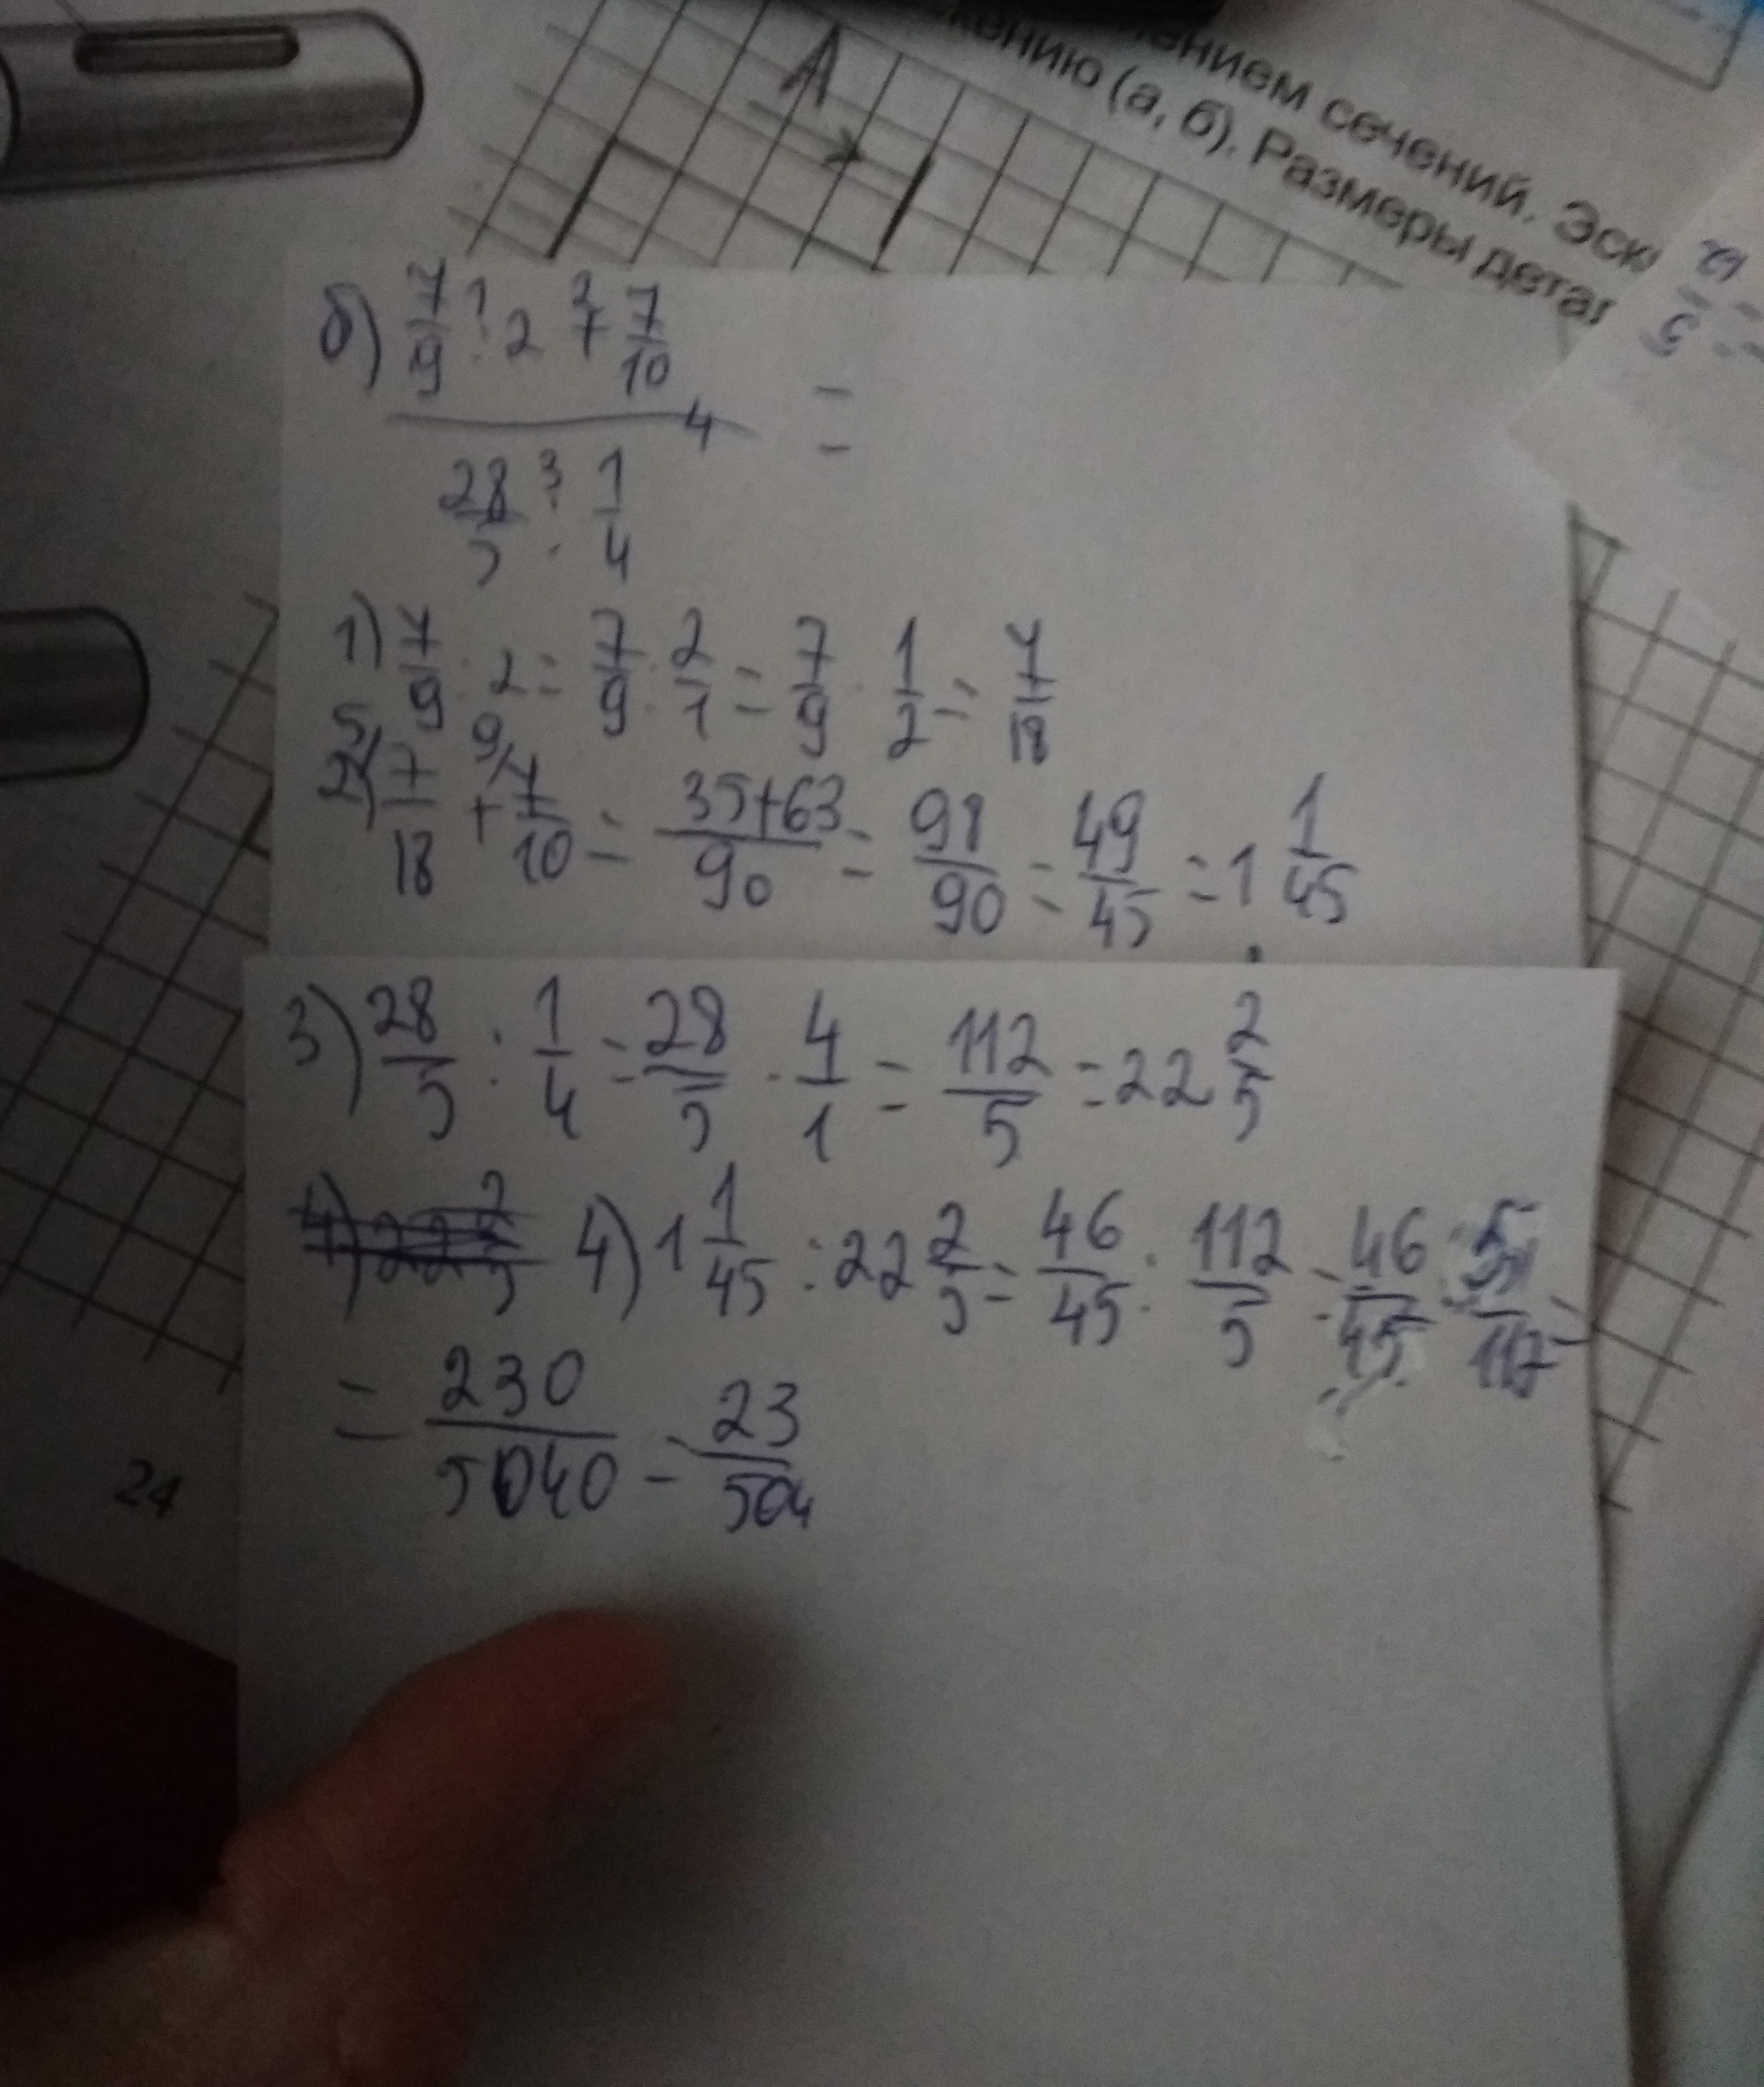 A
нием сечений. Эск
ению (а, б). Размеры дета
б) 7/9 : 2 + 7/10 =
28/5 : 1/4
1) 7/9 : 2 = 7/9 : 2/1 = 7/9 · 1/2 = 7/18
2) 7/18 + 7/10 = 35+63/90 = 98/90 = 49/45 = 1 1/45
3) 28/5 : 1/4 = 28/5 · 4/1 = 112/5 = 22 2/5
4) 22 2/5 4) 1 1/45 : 22 2/5 = 46/45 : 112/5 = 46/45 · 5/112 =
= 230/5040 = 23/504
24